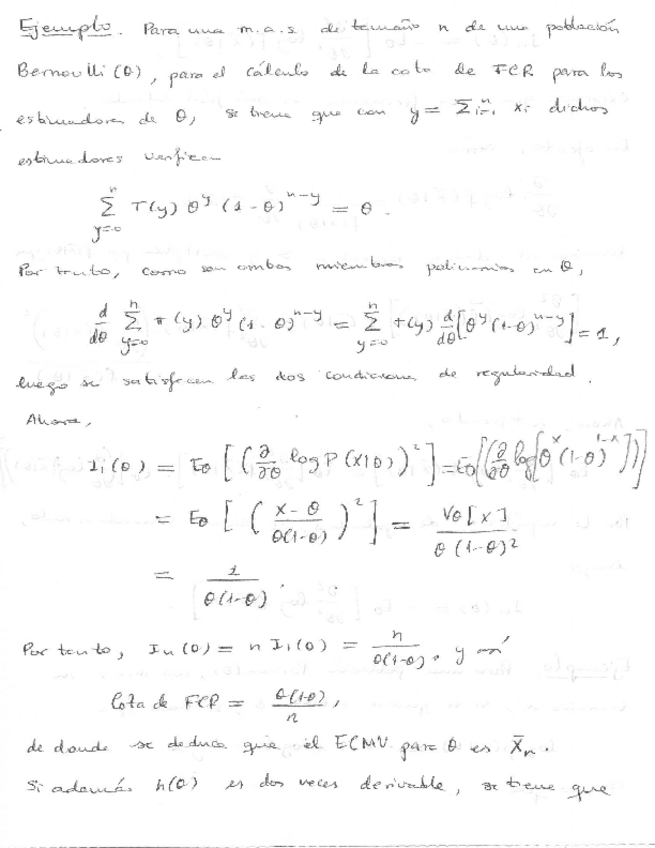 Ejemplo. Para una m.a.s. de tamaño n de una población
Bernoulli (θ), para el cálculo de la cota de FCR para los
estimadores de θ, se tiene que con y = Σ_{i=1}^{n} x_i dichos
estimadores verifican
Σ_{y=0}^{n} T(y) θ^y (1-θ)^{n-y} = θ.
Por tanto, como son ambos miembros polinomios en θ,
d/dθ Σ_{y=0}^{n} T(y) θ^y (1-θ)^{n-y} = Σ_{y=0}^{n} T(y) d/dθ [θ^y (1-θ)^{n-y}] = 1,
luego se satisfacen las dos condiciones de regularidad.
Ahora,
I_1(θ) = E_θ [ ( ∂/∂θ log P(X|θ) )^2 ] = E_θ [ ( ∂/∂θ log [ θ^x (1-θ)^{1-x} ] ) ]
= E_θ [ ( (X-θ) / θ(1-θ) )^2 ] = V_θ[X] / θ(1-θ)^2
= 1 / θ(1-θ).
Por tanto, I_n(θ) = n I_1(θ) = n / θ(1-θ), y así
Cota de FCR = θ(1-θ) / n,
de donde se deduce que el ECMV para θ es X̄_n.
Si además h(θ) es dos veces derivable, se tiene que